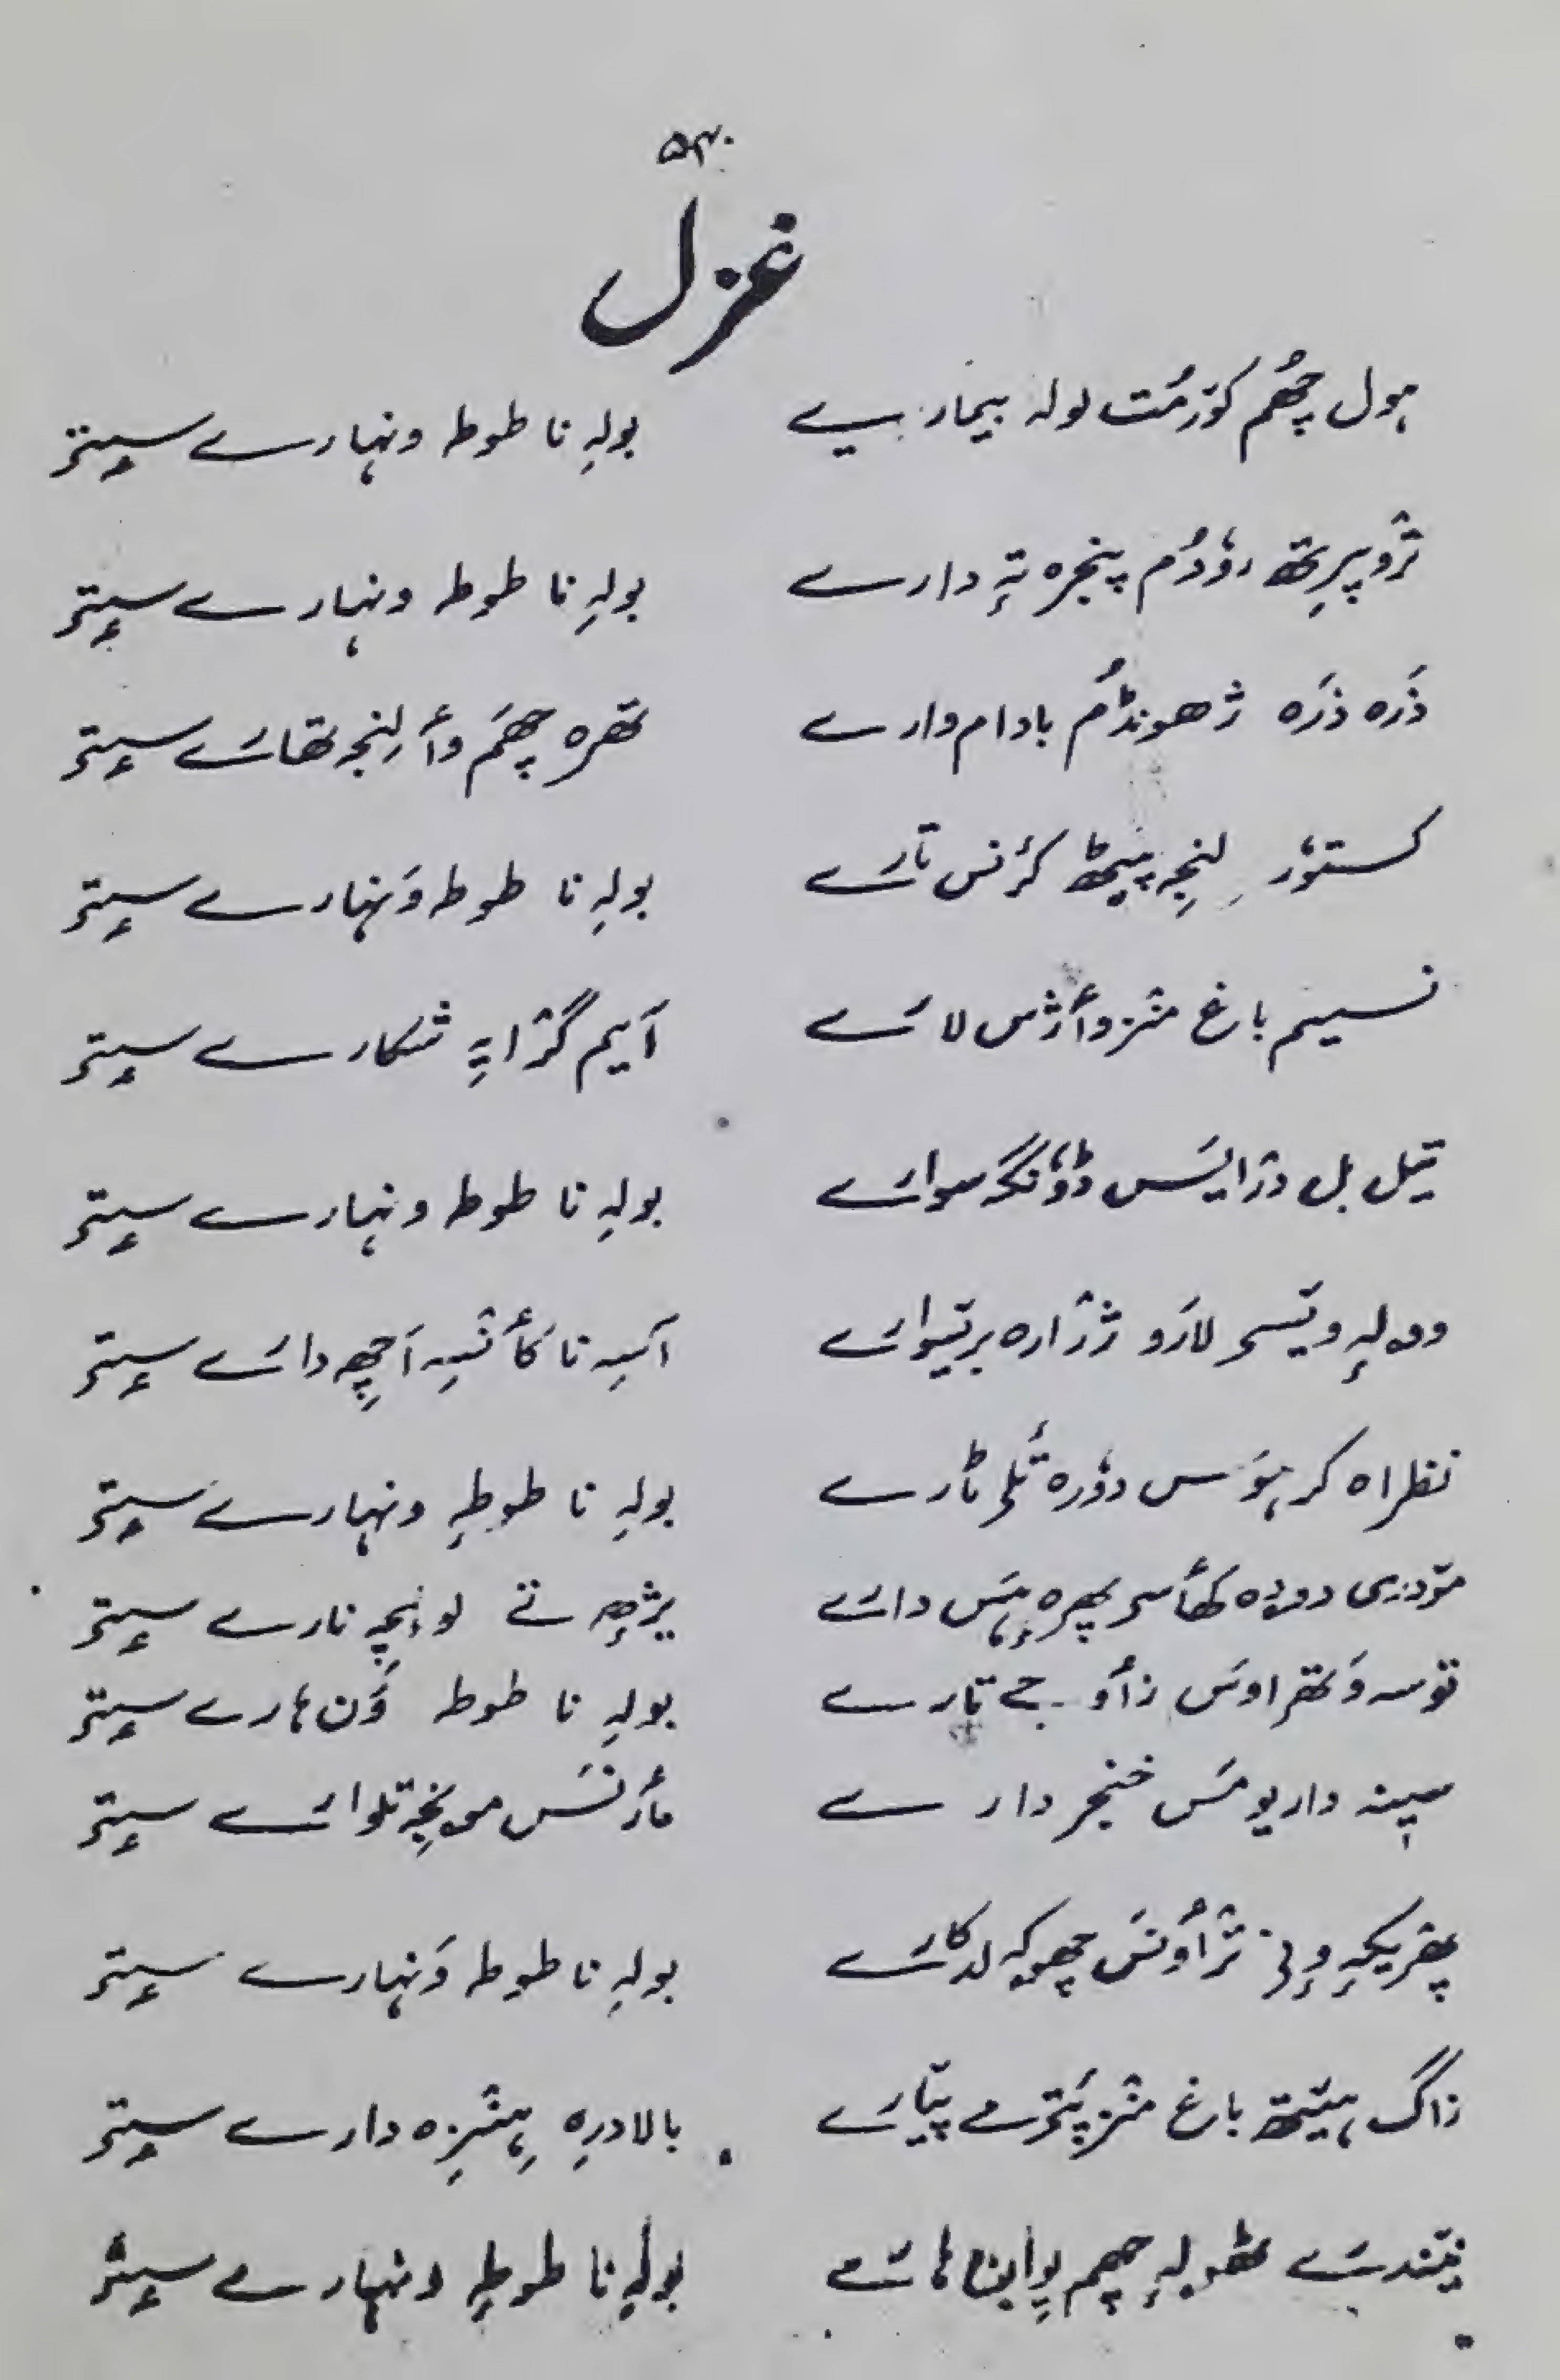 ۵۳۰
غزل
ہول چھُم کوٚرمُت لولہ بیمارییے بولہِ نا طوطہ ونہارے سٟتۍ
ترٛوپرِتھ روٗدُم پنجرہ تہٕ دارے بولہِ نا طوطہ ونہارے سٟتۍ
ذَرہ ذَرہ ژھونڈُم بادام وارے تھرہ چھَم وٲلِنجہ تھارے سٟتۍ
کستوٗر لنجہِ پیٹھ کرٛنس تارے بولہِ نا طوطہ وَنہارے سٟتۍ
نسیم باغ منز وٲژس لارے آیم گرٛایہِ شکارے سٟتۍ
تیل بل درٛایَس ڈوٗنگہ سوارے بولہِ نا طوطہ ونہارے سٟتۍ
ووٚلہٕ ویٚسی لارَو ژرٛارہ برٛتیوارے آسہِ نا کٲنسہِ اَچھِ دارے سٟتۍ
نظراہ کر ہوٚس دوٗرہ تُلۍ ٹارے بولہِ نا طوطہِ ونہارے سٟتۍ
موٚدرۍ دودہ کھٲسۍ بھرہ ہَس دارے یژھہِ تے لوٚلچہِ نارے سٟتۍ
توسہ وَتھراوس زٲوجے تارے بولہِ نا طوطہ وَن ہارے سٟتۍ
سینہ داریومَس خنجر دارے مٲرنَس مویخہٕ تلوارے سٟتۍ
پھریکہِ ترٛٲونَس چھوکہ لدکارے بولہِ نا طوطہ وَنہارے سٟتۍ
زاگ ہیٚتھ باغ منز پَترٕمے پیارے بالادرِہ ہنزِہ دارے سٟتۍ
بولہِ نا طوطہِ ونہارے سٟتۍ